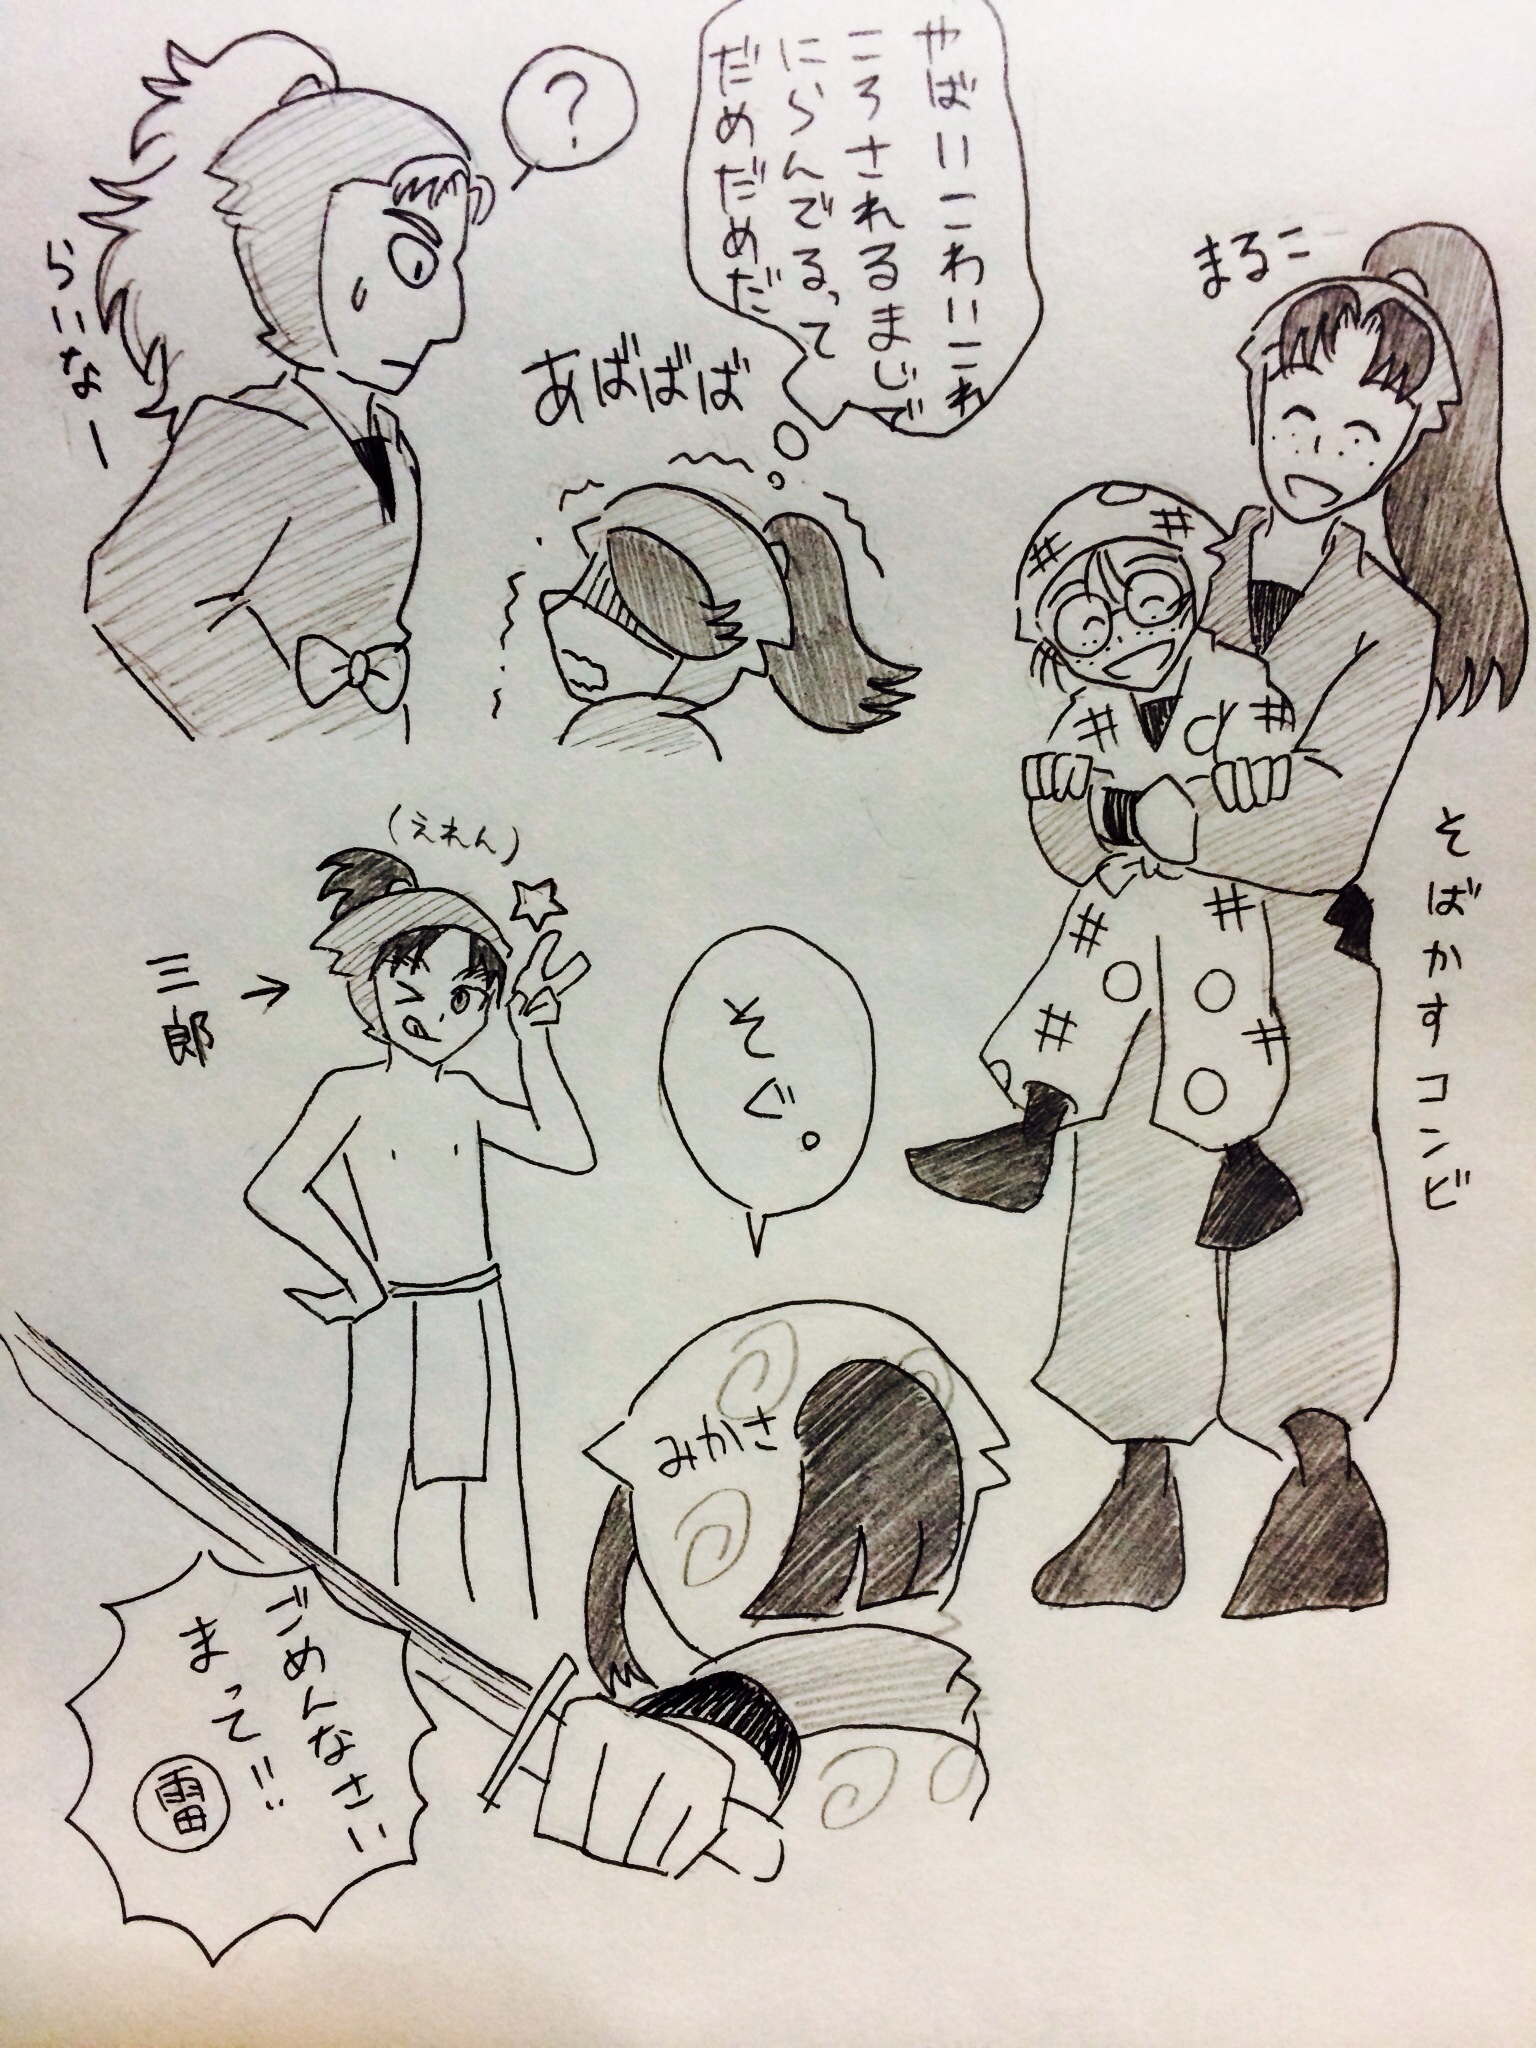 やばいこわいこれ
ころされるまじで
にらんでるって
だめだめだ
?
らいなー
あばばば
まるこ
そばかすコンビ
(えれん)
三郎
そぐ。
みかさ
ごめんなさい
まって!!
雷